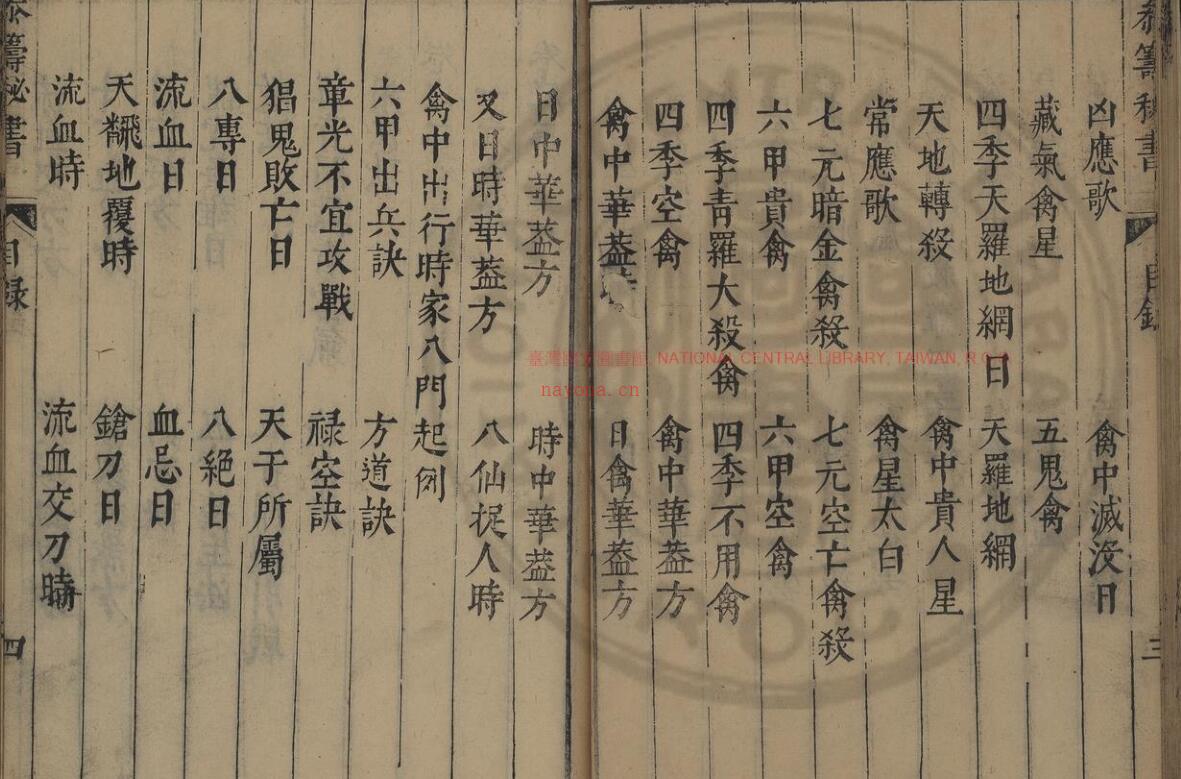 參籌秘書
目錄
三
凶應歌　禽中滅沒日
藏氣禽星　五鬼禽
四季天羅地網日　天羅地網
天地轉殺　禽中貴人星
常應歌　禽星太白
七元暗金禽殺　七元空亡禽殺
六甲貴禽　六甲空禽
四季青羅大殺禽　四季不用禽
四季空禽　禽中華葢方
禽中華葢時　日禽華葢方
日中華葢方　時中華葢方
又日時華葢方　八仙捉人時
禽中出行時家八門起例
六甲出兵訣　方道訣
章光不宜攻戰　祿空訣
猖鬼敗亡日　天干所屬
八專日　八絕日
流血日　血忌日
天翻地覆時　鎗刀日
流血時　流血交刀時
參籌秘書
目錄
四
臺灣國家圖書館, NATIONAL CENTRAL LIBRARY, TAIWAN, R.O.
nayona.cn